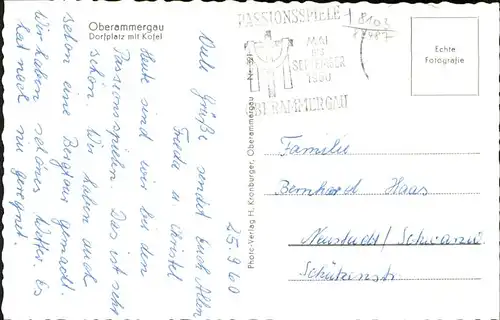 Oberammergau
Dorfplatz mit Kofel
Viele Grüße sendet Euch Allen
Frieda u. Christel
Heute sind wir bei den
Passionsspielen. Das ist sehr
schön. Wir haben auch
schon eine Bergtour gemacht.
Wir haben schönes Wetter. Es
hat noch nie geregnet.
25.9.60
Photo-Verlag H. Kronburger, Oberammergau Nr.
PASSIONSSPIELE
MAI
BIS
SEPTEMBER
1960
OBERAMMERGAU
8103
Echte
Fotografie
Familie
Bernhard Haas
Neustadt / Schwarzw.
Schützenstr.